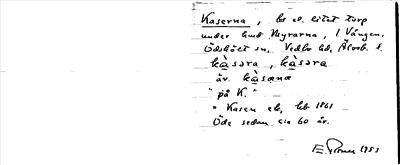 Kaserna, bs el. litet torp
under hmd Myrarna, i Vången,
Ödskölt sn, Vedbo hd, Älvsb. l.
kàsəra, kàsəra
äv. kàsəna
"på K."
= Kasen ek, hb 1861
Öde sedan c:a 60 år.
1953